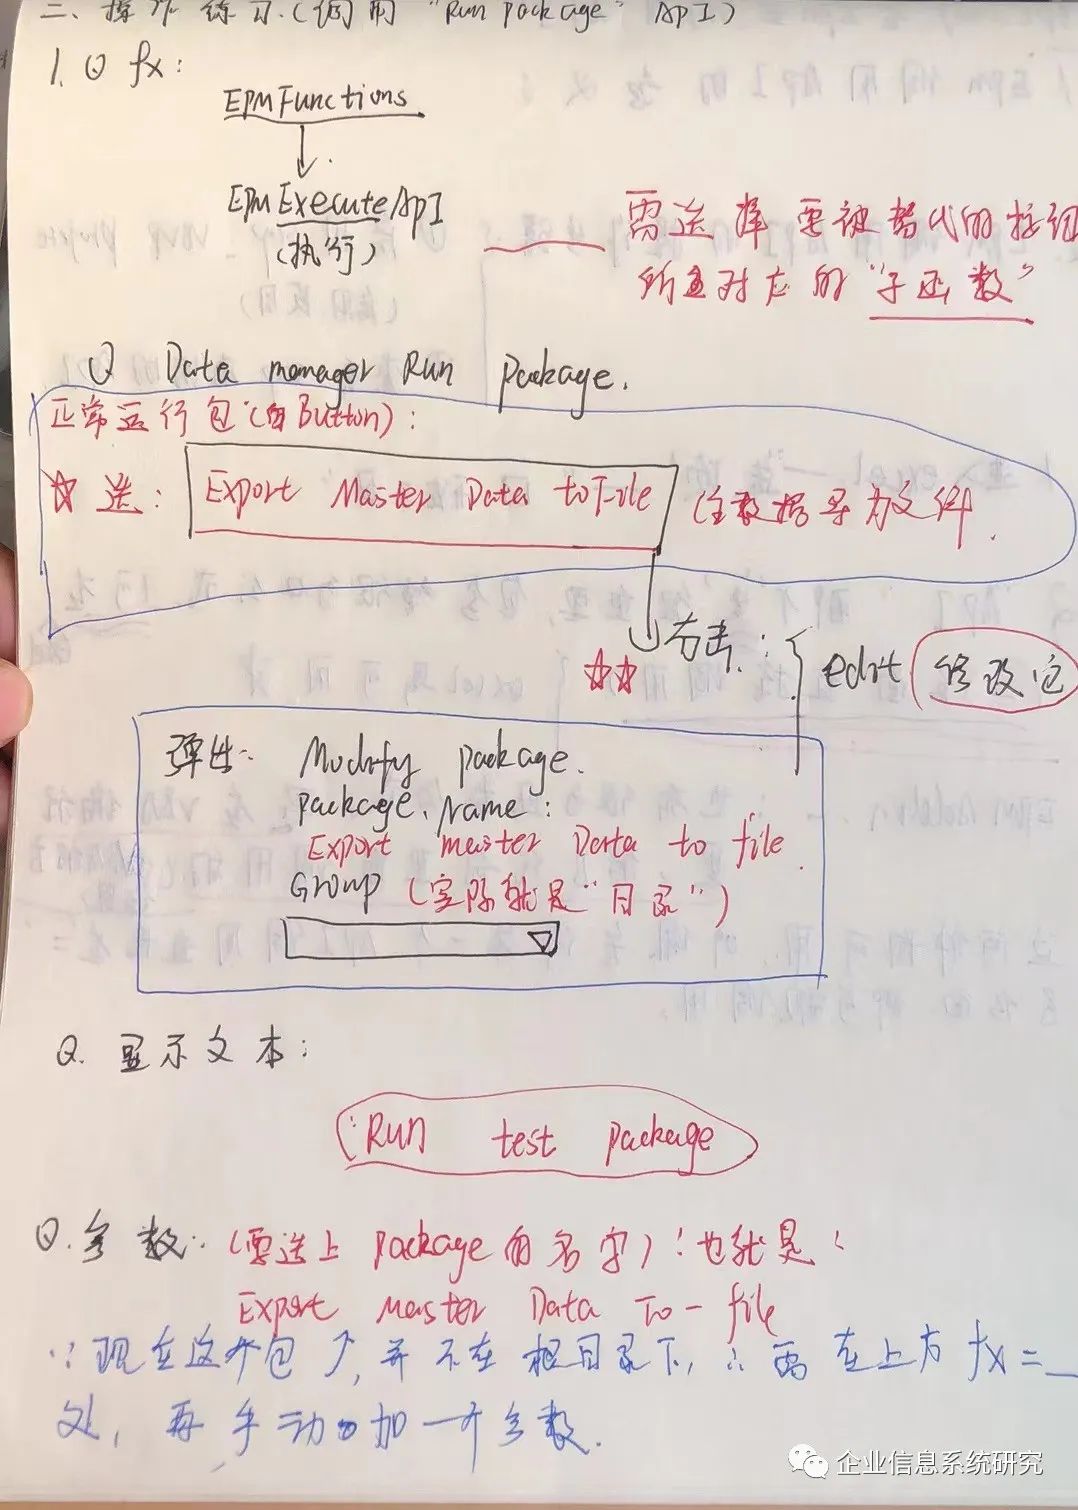 二、操作练习.(调用 "Run package" API)
1. ① fx:
EPMFunctions
EPMExecuteApI
(执行)
需选择要被替代的按钮
所直对应的"子函数"
① Data manager Run package.
正常运行包(的Button):
☆ 选: Export Master Data toFile (主数据导为文件.
右击:
☆☆
edit 修改包
弹出: Modify package.
package. name:
Export master Data to file.
Group (实际就是"目录")
Q. 显示文本:
Run test package
Q. 参数: (要选上 package 的名字): 也就是:
Export Master Data To-file
∵现在这个包↗, 并不在根目录下, ∴需在上方 fx=_
处, 再手动加一个参数.
企业信息系统研究